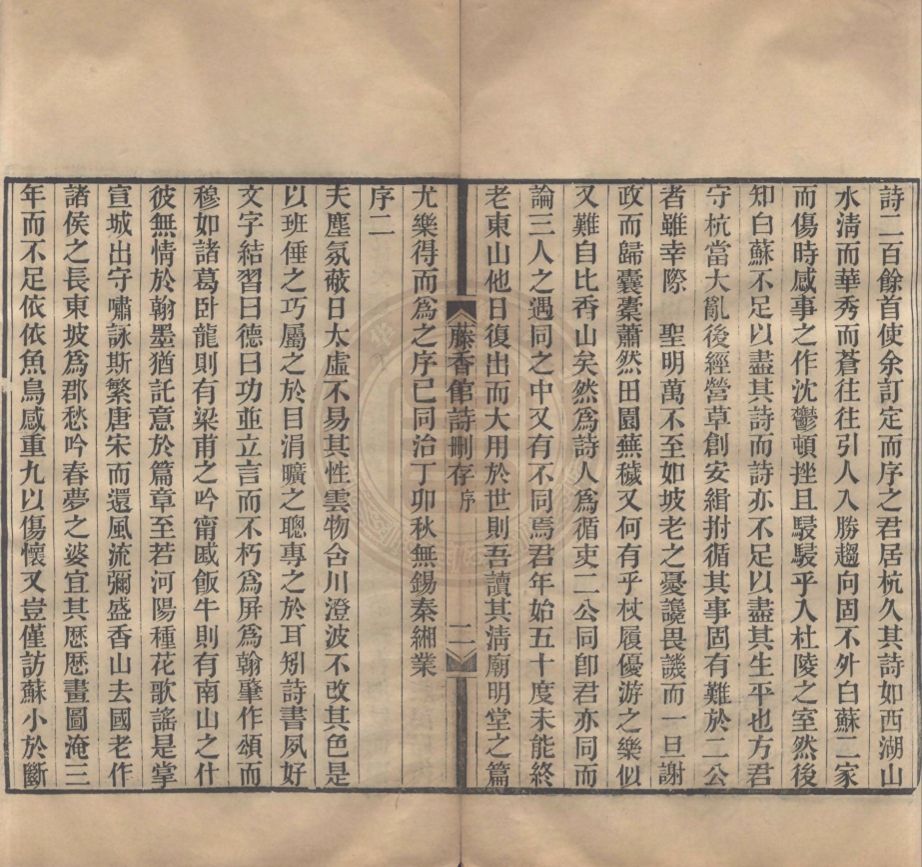 詩二百餘首使余訂定而序之君居杭久其詩如西湖山
水清而華秀而蒼往往引人入勝趨向固不外白蘇二家
而傷時感事之作沈鬱頓挫且駸駸乎入杜陵之室然後
知白蘇不足以盡其詩而詩亦不足以盡其生平也方君
守杭當大亂後經營草創安緝拊循其事固有難於二公
者雖幸際　聖明萬不至如坡老之憂讒畏譏而一旦謝
政而歸囊橐蕭然田園蕪穢又何有乎杖履優游之樂似
又難自比香山矣然爲詩人爲循吏二公同卽君亦同而
論三人之遇同之中又有不同焉君年始五十度未能終
老東山他日復出而大用於世則吾讀其淸廟明堂之篇
藤香館詩刪存 序 二
尤樂得而爲之序已同治丁卯秋無錫秦緗業
序二
夫塵氛蔽日太虛不易其性雲物合川澄波不改其色是
以班倕之巧屬之於目涓曠之聰專之於耳矧詩書夙好
文字結習曰德曰功並立言而不朽爲屏爲翰肇作頌而
穆如諸葛臥龍則有梁甫之吟甯戚飯牛則有南山之什
彼無情於翰墨猶託意於篇章至若河陽種花歌謠是掌
宣城出守嘯詠斯繁唐宋而還風流彌盛香山去國老作
諸侯之長東坡爲郡愁吟春夢之婆宜其歷歷畫圖淹三
年而不足依依魚鳥感重九以傷懷又豈僅訪蘇小於斷